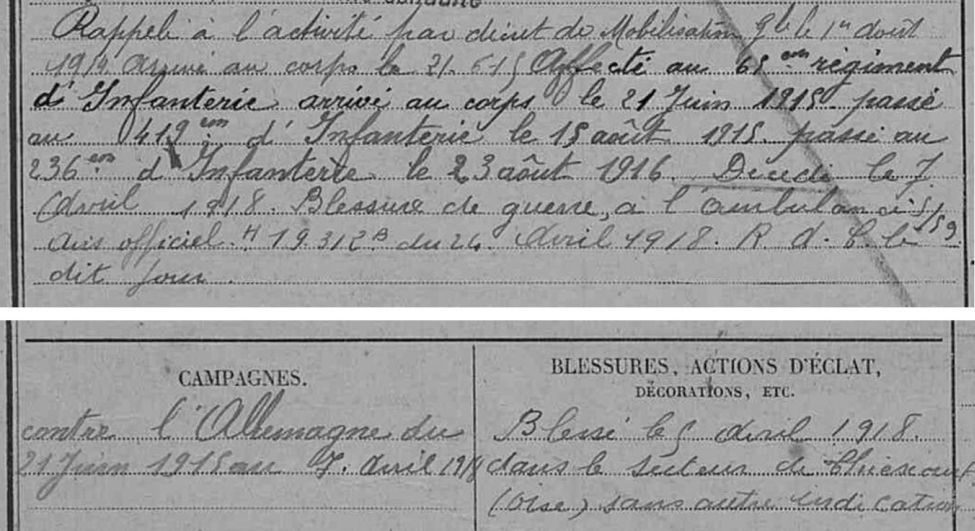 Rappelé à l'activité par décret de Mobilisation gle le 1er août
1914 arrivé au corps le 21.6.15 Affecté au 65 em régiment
d'Infanterie arrivé au corps le 21 Juin 1915. passé
au 412 em d'Infanterie le 15 août 1915. passé au
236 em d'Infanterie le 23 août 1916. Décédé le 7
Avril 1918. Blessure de guerre, à l'ambulance 5/59
avis officiel. H 19312 B du 24 Avril 1918. R d. C. le
dit jour.
CAMPAGNES.
contre l'Allemagne du
21 Juin 1915 au 7. Avril 1918
BLESSURES, ACTIONS D'ÉCLAT,
DÉCORATIONS, ETC.
Blessé le 5 Avril 1918.
dans le secteur de Chiescourt
(Oise) sans autre indication